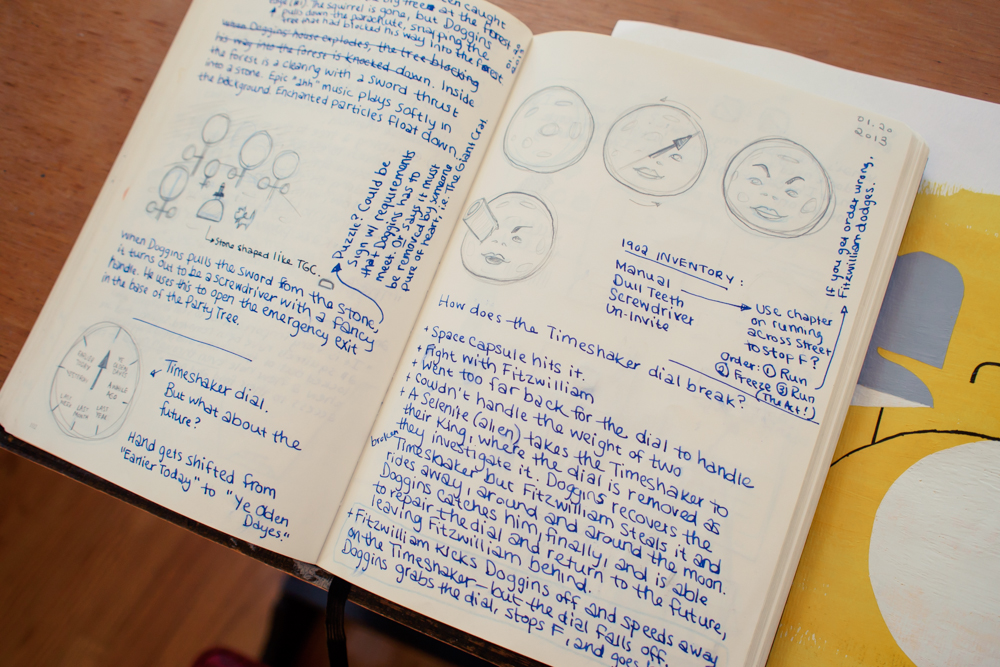 been caught
big tree at the forest
edge (#1). The squirrel is gone, but Doggins
pulls down the parachute, snapping the
tree that had blocked his way into the forest.
When Doggins house explodes, the tree blocking
his way into the forest is knocked down. Inside
the forest is a clearing with a sword thrust
into a stone. Epic "ahh" music plays softly in
the background. Enchanted particles float down.
Stone shaped like TGC.
Puzzle? Could be
sign w/ requirements
that Doggins has to
meet. Or says it must
be removed by someone
pure of heart, i.e. The Giant Crab.
When Doggins pulls the sword from the stone,
it turns out to be a screwdriver with a fancy
handle. He uses this to open the emergency exit
in the base of the Party Tree.
YE OLDEN DAYES
A WHILE AGO
LAST YEAR
LAST MONTH
LAST WEEK
YESTERDAY
EARLIER TODAY
Timeshaker dial.
But what about the
future?
Hand gets shifted from
"Earlier Today" to "Ye Olden
Dayes."
01.20
2013
1902 INVENTORY:
Manual
Dull Teeth
Screwdriver
Un-Invite
Use chapter
on running
across street
to stop F?
Order: ① Run
② Freeze ③ Run
(The Act!)
If you get order wrong,
Fitzwilliam dodges.
How does the Timeshaker dial break?
+ Space capsule hits it.
+ Fight with Fitzwilliam
+ Went too far back for the dial to handle
+ Couldn't handle the weight of two
+ A Selenite (alien) takes the Timeshaker to
their King, where the dial is removed as
they investigate it. Doggins recovers the
broken Timeshaker but Fitzwilliam steals it and
rides away, around and around the moon.
Doggins catches him, finally, and is able
to repair the dial and return to the future,
leaving Fitzwilliam behind.
+ Fitzwilliam kicks Doggins off and speeds away
on the Timeshaker—but the dial falls off.
Doggins grabs the dial, stops F, and goes